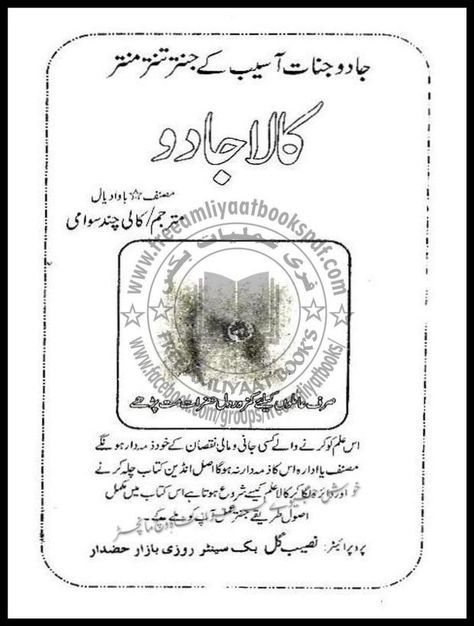 جادو جنات آسیب کے جنتر تنتر منتر
کالا جادو
مصنف ☆ باوا دیال
مترجم/کالی چند سوامی
www.freeamliyaatbookspdf.com
فری عملیات بکس
FREE AMLIYAAT BOOKS
www.facebook.com/groups/freeamliyaatbooks/
صرف عاملوں کیلئے کمزور دل حضرات مت پڑھے
اس علم کو کرنے والے کسی جانی و مالی نقصان کے خود ذمہ دار ہونگے
مصنف یا ادارہ اس کا ذمہ دار نہ ہوگا اصل انڈین کتاب چلہ کرنے
اور دائرہ لگا کر کالا علم کیسے شروع ہوتا ہے اس کتاب میں مکمل
اصول طریقے جنتر آپ کو ملے گے۔
پروپرائیٹر: نصیب گل بک سینٹر روزی بازار حضدار